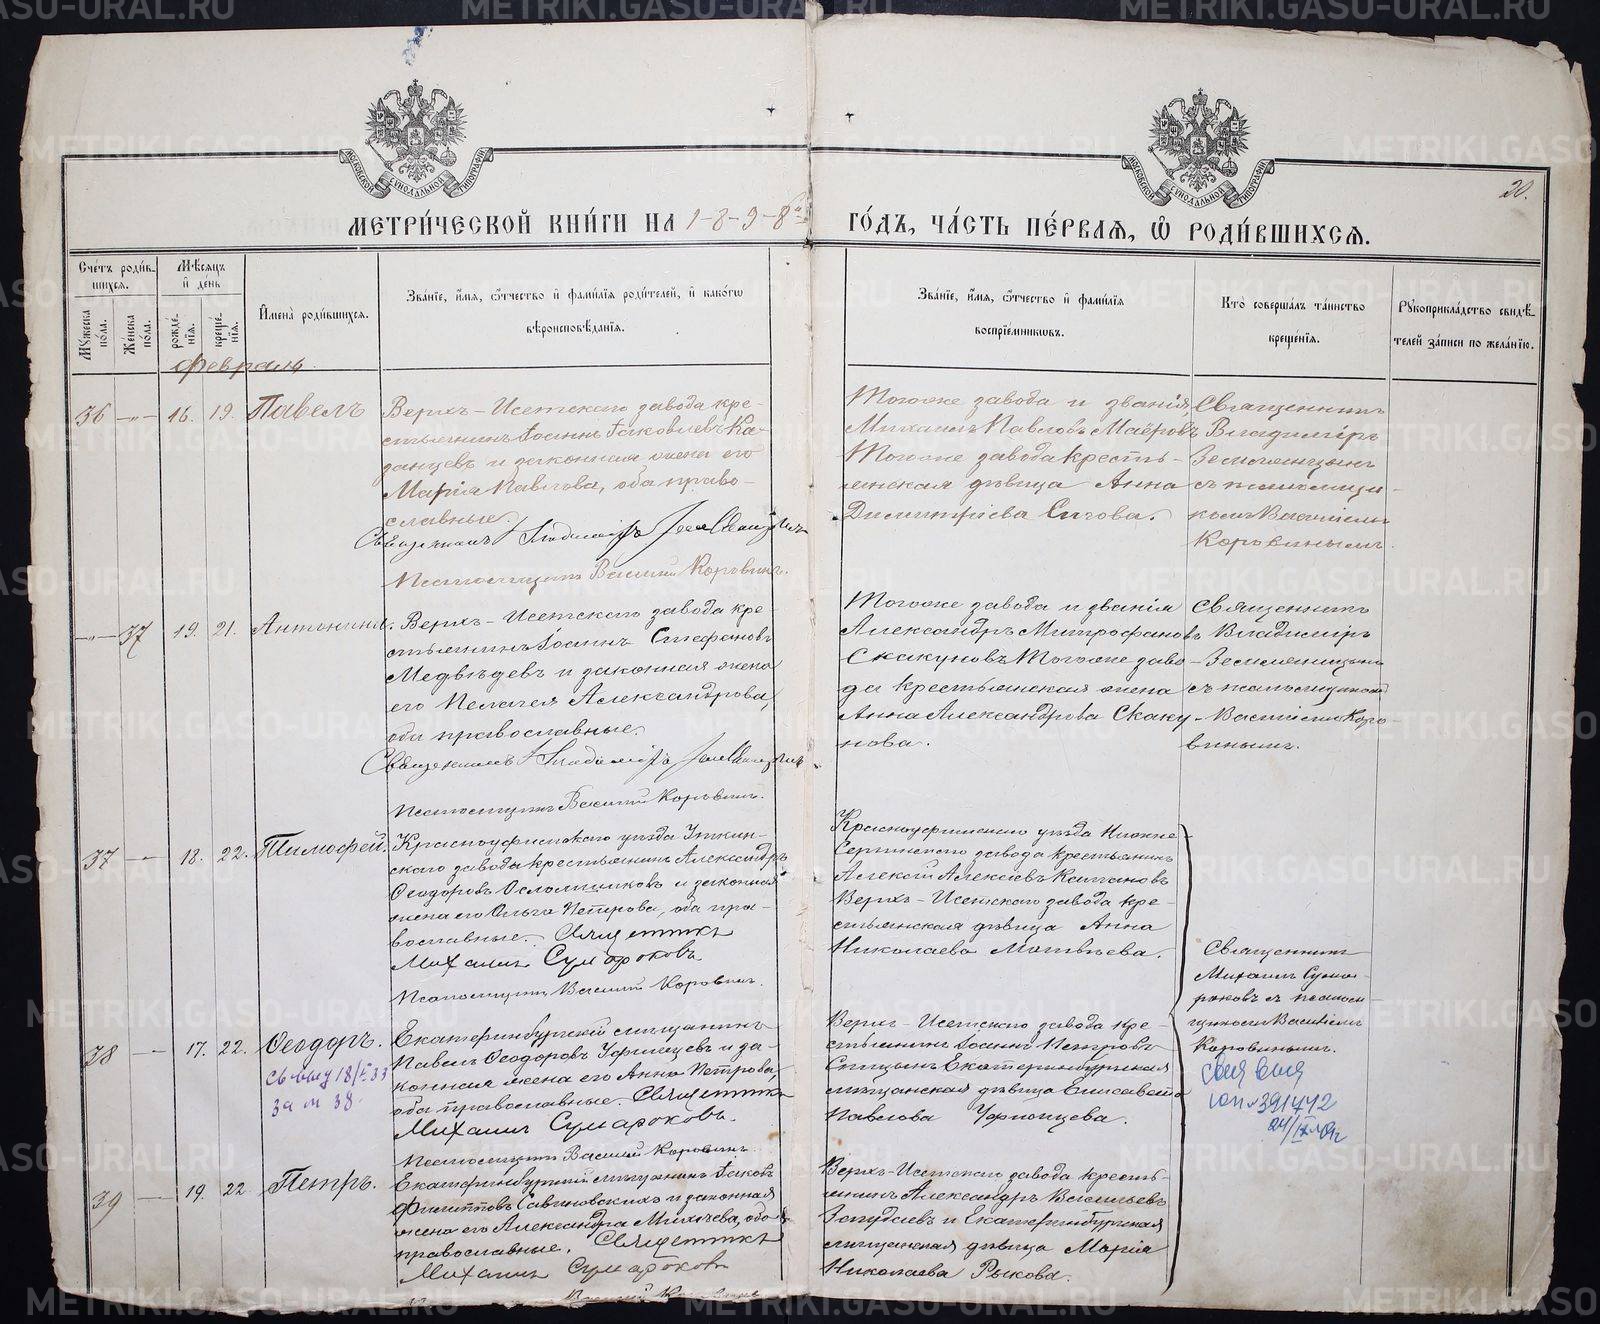 МЕТРИ́ЧЕСКОЙ КНИ́ГИ НА 1-8-9-8й
ГО́ДЪ, ЧА́СТЬ ПЕ́РВАЯ, Ѽ РОДИ́ВШИХСЯ.
20.
МОСКОВСКОЙ СѴНОДАЛЬНОЙ ТИПОГРАФІИ
МОСКОВСКОЙ СѴНОДАЛЬНОЙ ТИПОГРАФІИ
Сче́тъ роди́вшихся.
Мꙋ́жеска по́ла.
Же́нска по́ла.
Мѣ́сяцъ и҆ де́нь
рожде́нїя.
креще́нїя.
И҆мена̀ роди́вшихся.
Зва́нїе, и҆́мя, ѻ҆́тчество и҆ фами́лїя роди́телей, и҆ како́гѡ
вѣроисповѣ́данїя.
Зва́нїе, и҆́мя, ѻ҆́тчество и҆ фами́лїя
воспрїе́мникѡвъ.
Кто̀ соверша́лъ та́инство
креще́нїя.
Рꙋкоприкла́дство свидѣ́-
телей за́писи по жела́нїю.
Февраль.
36 —„— 16. 19. Павелъ
Верхъ-Исетскаго завода кре-
стьянинъ Іоаннъ Іаковлевъ Ка-
занцевъ и законная жена его
Марія Павлова, оба право-
славные.
Священникъ Владиміръ Земляницынъ
Псаломщикъ Василій Коровинъ.
Тогоже завода и званія
Михаилъ Павловъ Мавровъ
Тогоже завода кресть-
янская дѣвица Анна
Димитріева Сигова.
Священникъ
Владиміръ
Земляницынъ
съ псаломщи-
комъ Василіемъ
Коровинымъ.
—„— 37 19. 21. Антонина.
Верхъ-Исетскаго завода кре-
стьянинъ Іоаннъ Стефановъ
Медвѣдевъ и законная жена
его Пелагея Александрова,
оба православные.
Священникъ Владиміръ Земляницынъ
Псаломщикъ Василій Коровинъ.
Тогоже завода и званія
Александръ Митрофановъ
Скакуновъ Тогоже заво-
да крестьянская жена
Анна Александрова Скаку-
нова.
Священникъ
Владиміръ
Земляницынъ
съ псаломщикомъ
Василіемъ Коро-
винымъ.
37 — 18. 22. Тимофей.
Красноуфимскаго уѣзда Уткин-
скаго завода крестьянинъ Александръ
Ѳеодоровъ и законная
жена его Ольга Петрова, оба пра-
вославные. Священникъ
Михаилъ Сумароковъ
Псаломщикъ Василій Коровинъ.
Красноуфимскаго уѣзда Нижне
Сергинскаго завода крестьянинъ
Алексѣй Алексѣевъ
Верхъ-Исетскаго завода кре-
стьянская дѣвица Анна
Николаева Матвѣева.
Священникъ
Михаилъ Сума-
роковъ съ псалом-
щикомъ Василіемъ
Коровинымъ.
38 — 17. 22. Ѳеодоръ.
Екатеринбургскій мѣщанинъ
Павелъ Ѳеодоровъ Уфимцевъ и за-
конная жена его Анна Петрова,
оба православные. Священникъ
Михаилъ Сумароковъ.
Псаломщикъ Василій Коровинъ.
18/I 33
за № 38
Верхъ-Исетскаго завода кре-
стьянинъ Іоаннъ Петровъ
Спицынъ Екатеринбургская
мѣщанская дѣвица Елисавета
Павлова Уфимцева.
391472
39 — 19. 22 Петръ.
Екатеринбургскій мѣщанинъ Іаковъ
Филипповъ Савиновскихъ и законная
жена его Александра Михѣева, оба
православные. Священникъ
Михаилъ Сумароковъ
Верхъ-Исетскаго завода кресть-
янинъ Александръ Васильевъ
и Екатеринбургская
мѣщанская дѣвица Марія
Николаева Рыкова.
METRIKI.GASO-URAL.RU